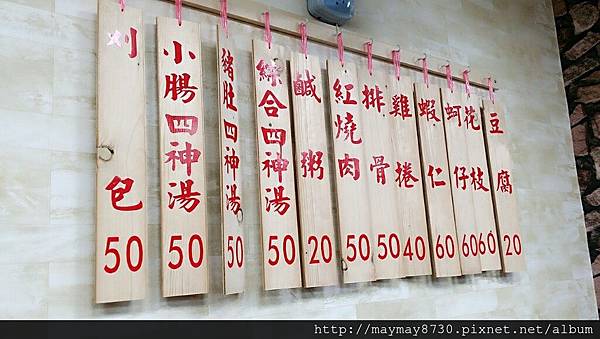 刈包 50
小腸四神湯 50
豬肚四神湯 50
綜合四神湯 50
鹹粥 20
紅燒肉 50
排骨 50
雞捲 40
蝦仁 60
蚵仔 60
花枝 60
豆腐 20
http://maymay8730.pixnet.net/album